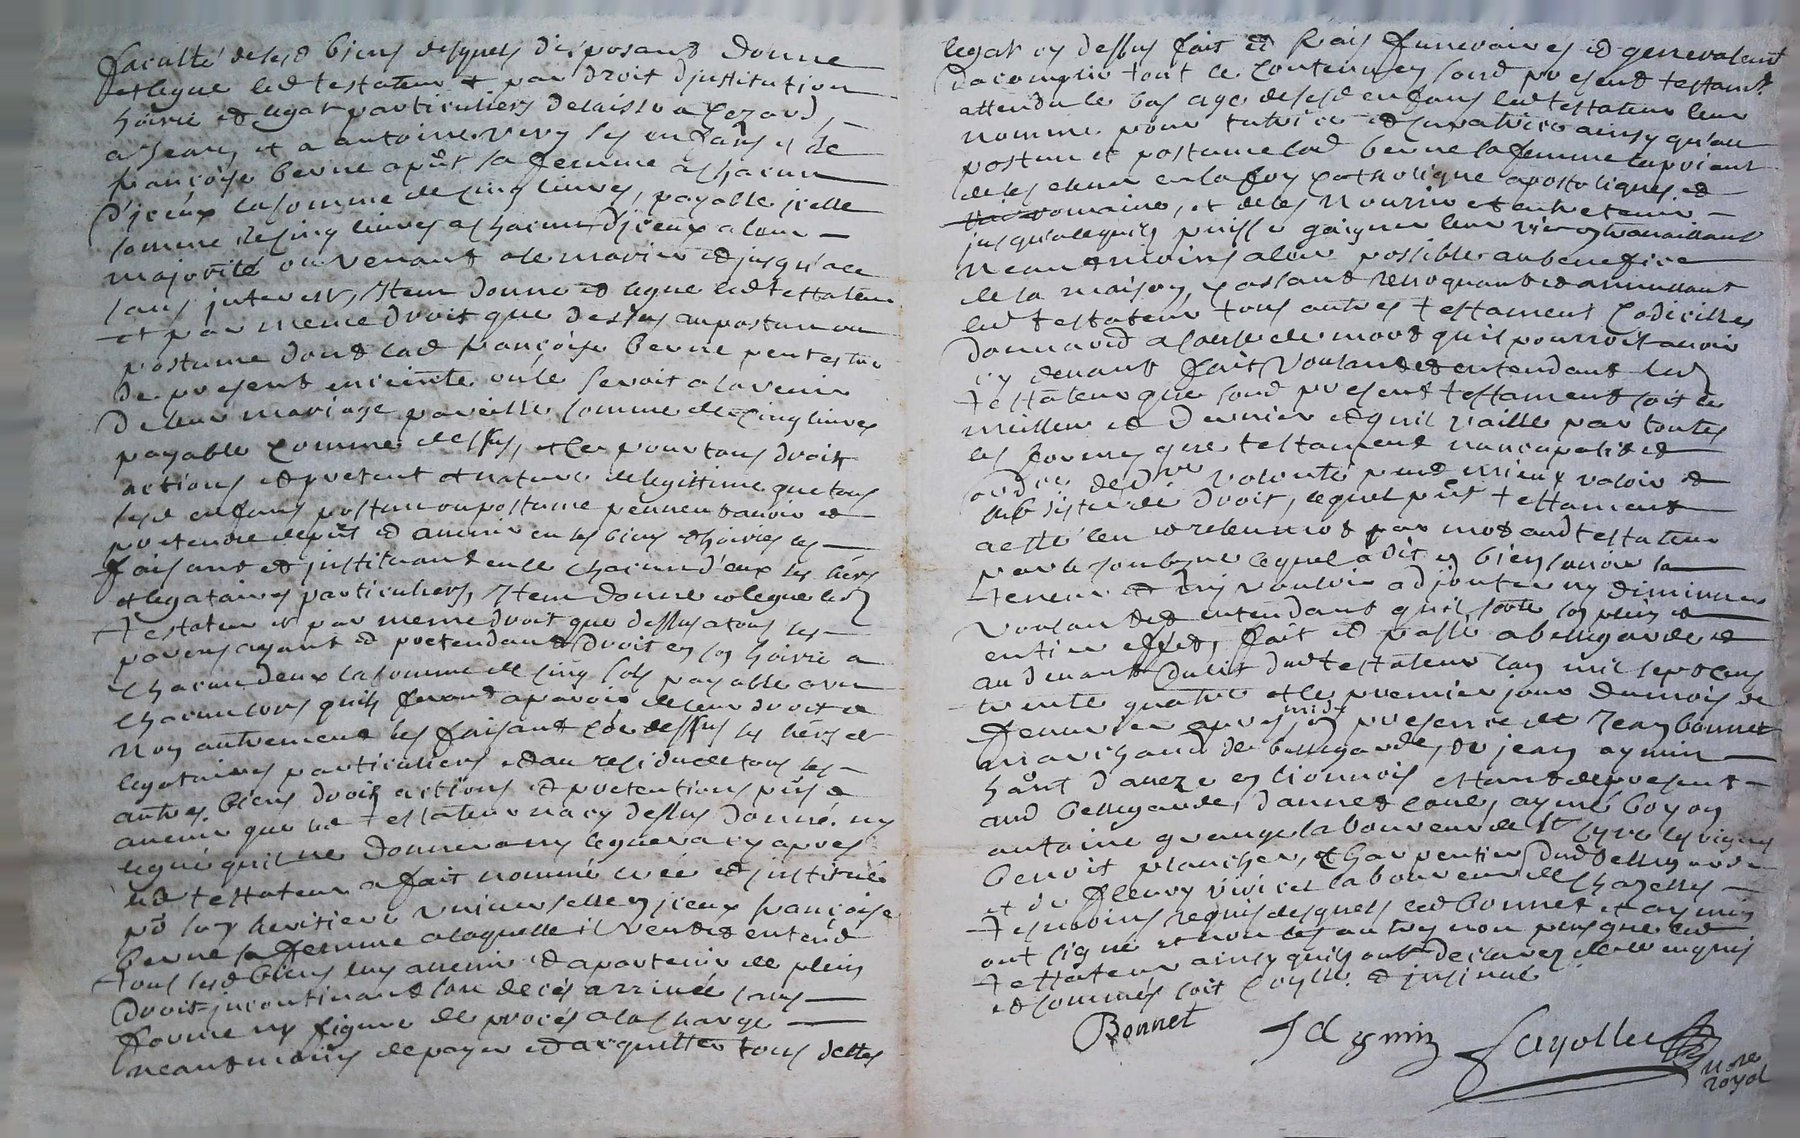 faculté desesd biens desquels disposant donne
et legue led testateur et par droit d'justitution
hoirie et legat particuliers delaisse a
a Jean, et a antoine very ses enfans et de
françoise berne apnt sa femme a chacun
d'jceux la somme de cinq livres, payable jcelle
somme de cinq livres a chacun d'jceux a leur
majorité ou venant a se marier et jusqu'a ce
sans jnterest, Jtem donne et legue led testateur
et par meme droit que dessus au postume ou
postume dont lad françoise berne peut estre
de present enceinte ou le seroit a lavenir
de leur mariage pareille somme de cinq livres
payable comme dessus, et ce pour tous droits
actions et pretent et nature de legittime que tous
sesd enfans postume ou postume peuvent avoir et
pretendre depnt et auenir en ses biens et hoiries les
faisant et justituant en ce chacun d'eux ses hers
et legataires particuliers, Jtem donne et legue led
testateur et par meme droit que dessus a tous ses
parens ayant et pretendant droit en son hoirie a
chacun deux la somme de cinq sols payable a un
chacun lors quils feront aparoir de leur droit et
non autrement les faisant ce dessus ses hers et
legataires particuliers et au residu de tous ses
autres biens droits actions et pretentions pnts et
auenir que led testateur na cy dessus donné ny
legué qu'il ne donnera ny leguera cy apres
led testateur a fait nommé créé et justitué
pr son heritiere universelle en jceux françoise
berne sa femme a laquelle il veut et entend
tous sesd biens luy auenir et apartenir de plein
droit jncontinant son deces arrivé sans
forme ny figure de procés a la charge
neantmoins de payer et acquitter tous dettes
legat cy dessus fait et frais funeraires et generalemt
dacomplir tout le contenu en sond present testamt
attendu le bas age desesd enfans led testateur leur
nomme pour tutrice et curatrice ainsy qu'au
postume et postume lad berne sa femme la priant
de les elever en la foy catholique apostolique et
romaine, et de les nourrir et entretenir
jusqu'a ce quils puisse gaigner leur vie en travaillant
neantmoins a leur possible au benefice
de la maison, cassant revoquant et annullant
led testateur tous autres testament codicilles
donna on a cause de mort quil pourroit avoir
cy devant fait voulant et entendant led
testateur que sond present testament soit le
meilleur et dernier et quil vaille par toutes
les formes que testament nuncupatif et
ordce de dre volonté peut mieux valoir et
subsister de droit, lequel pnt testament
a esté leu et releu mot par mot aud testateur
par le soubzne lequel a dit en bien savoir la
teneur et ny vouloir adjouter ny diminuer
voulant et entendant qu'il sorte son plein et
entier effet, fait et passé a bellegarde et
au devant du lit dud testateur lan mil sept cens
trente quatre et le premier jour du mois de
feurier apres midy en presence de Jean bonnet
marchand de bellegarde, Sr jean aymin
hant d'aueze en lionnois estant de present
aud bellegarde, aymé boyon
antoine grange laboureur de st Cyre les vignes
benoit plancher, charpentier dud bellegarde
et de fleury laboureur de chazelles
tesmoins requis desquels led bonnet et aymin
ont signé et non les autres non plus que led
testateur ainsy quils ont declarez de ce enquis
et sommés soit controllé et jnsinué
Bonnet
J aymin
notre
royal